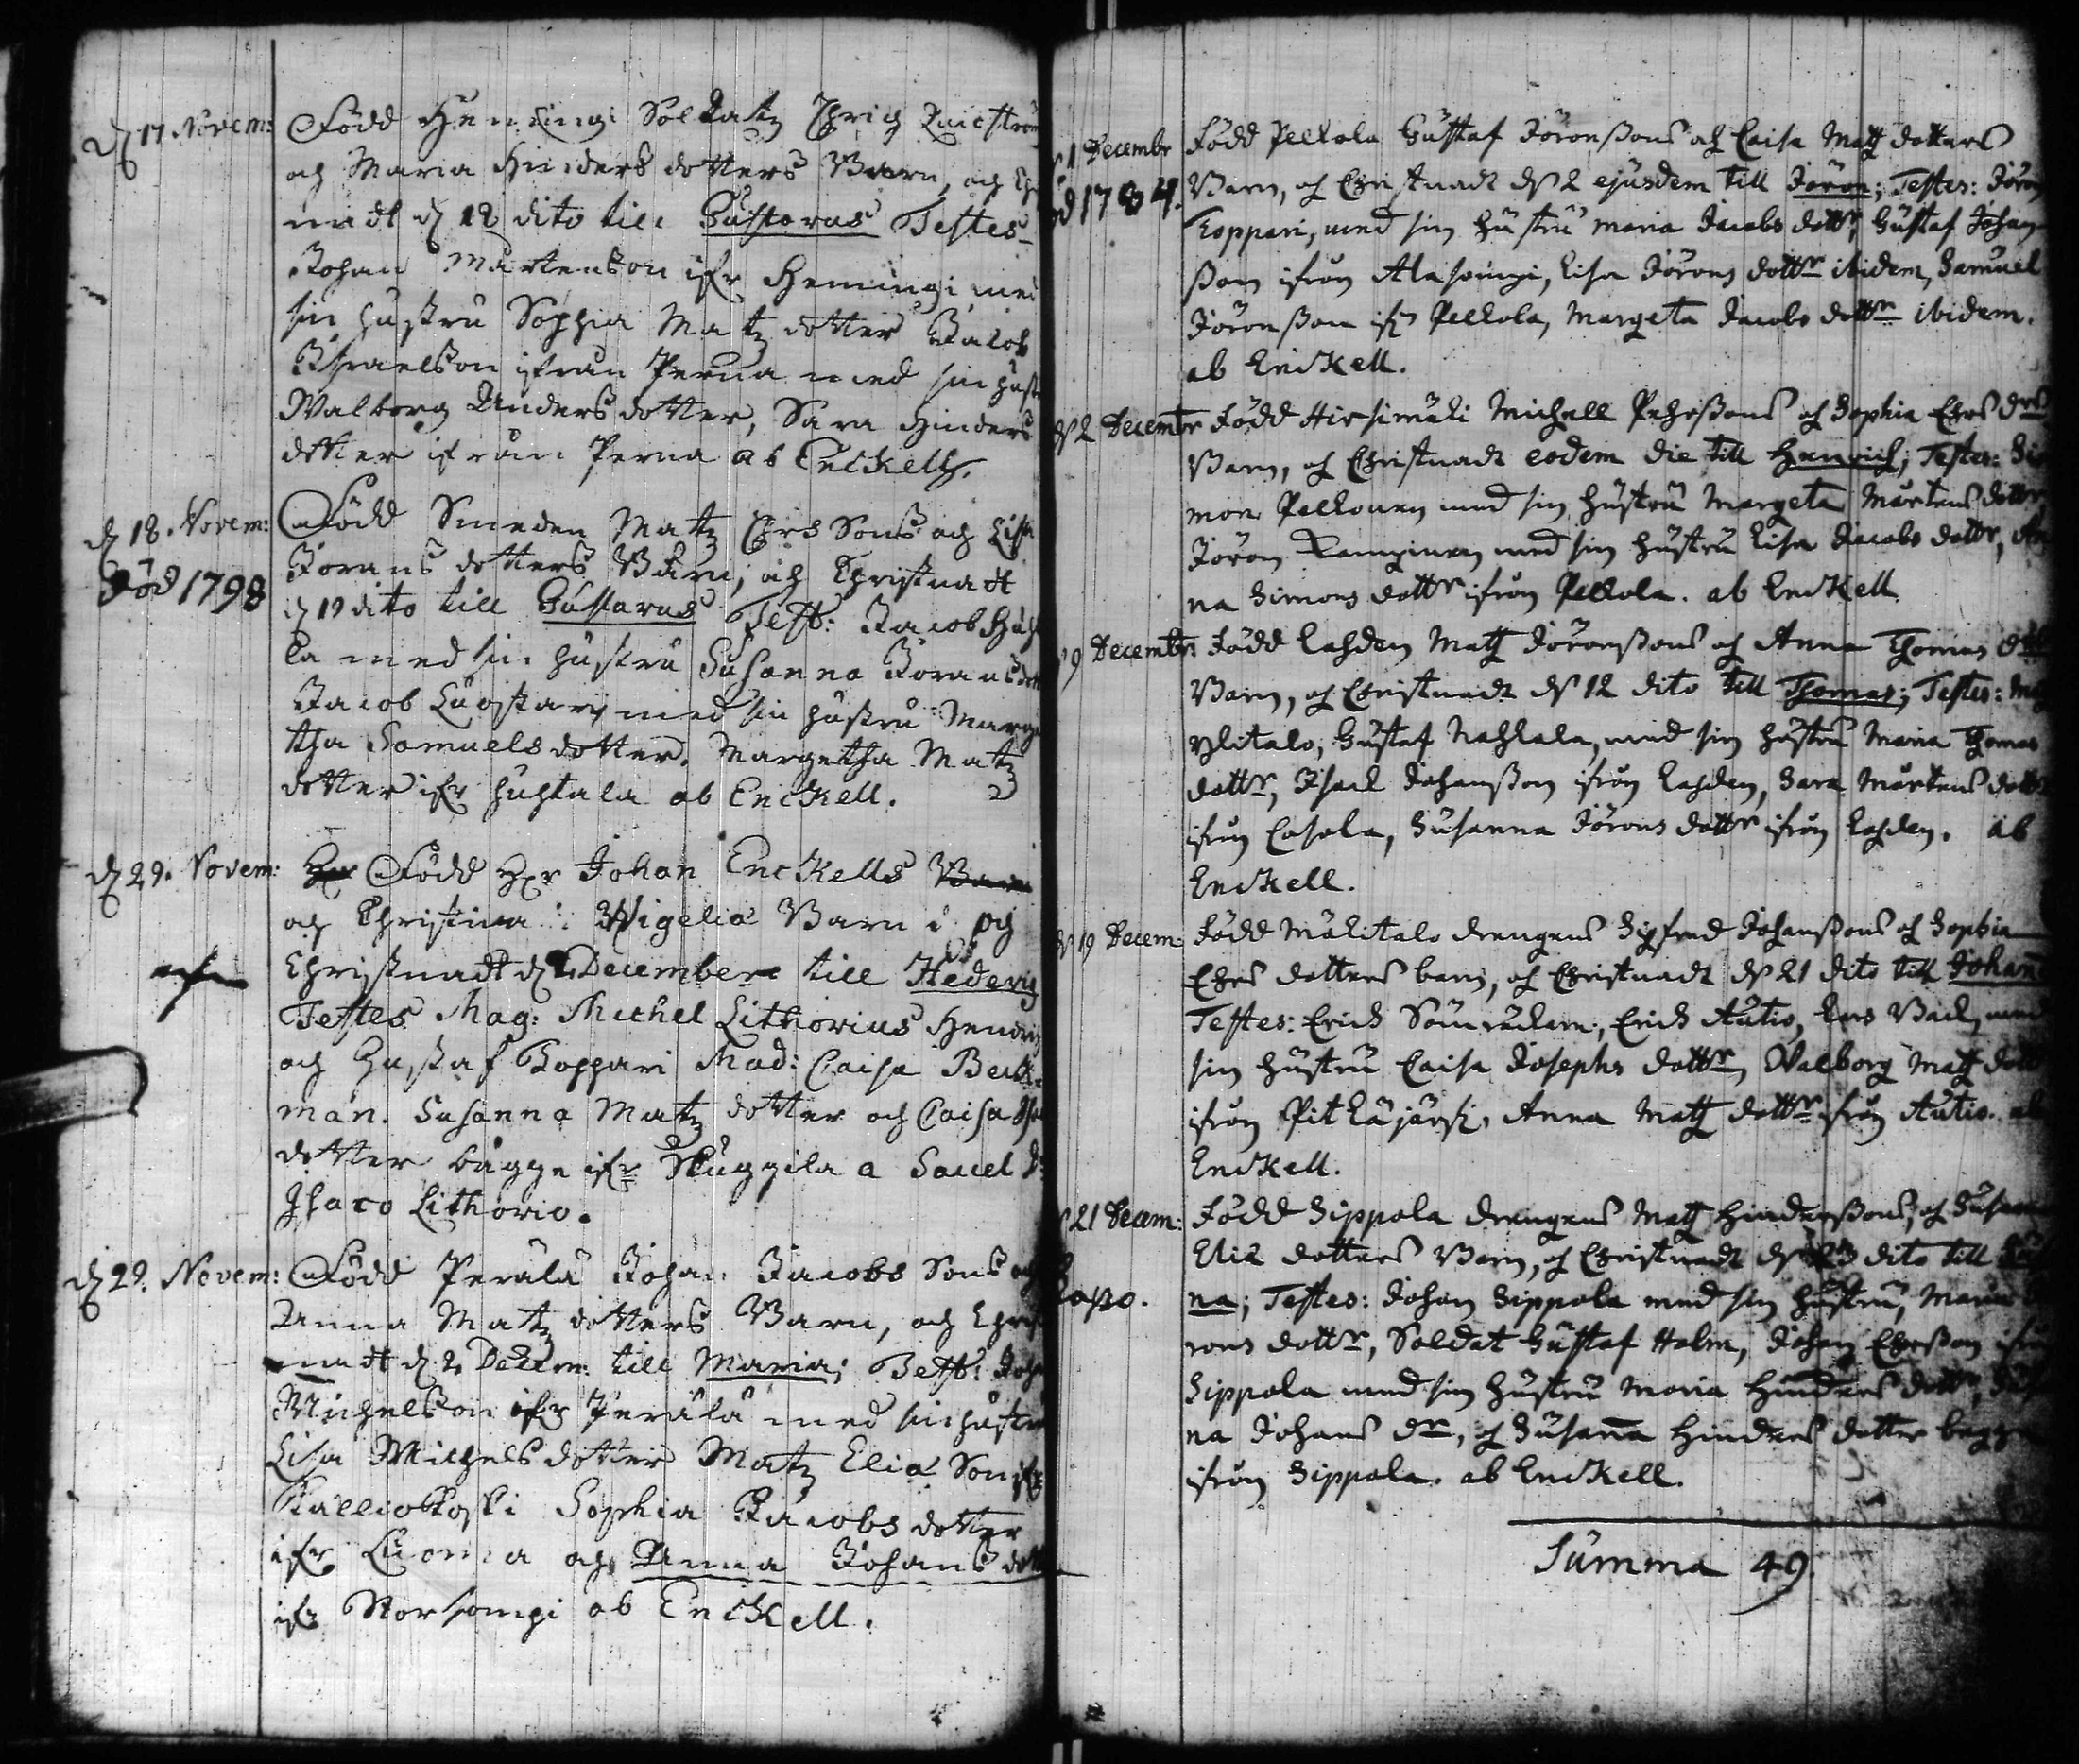 d 17. Novem:
Född Henningi Soldatz Chrig Quiström
och Maria Hinders dotters Barn, och
nadt d 18 dito till Gustavus Testes
Johan Mårtenson ifr Hemingi med
sin hustru Sophia Matz dotter Jacob
Israelson ifrån Perna med sin
Walborg Anders dotter, Sara Hinders
dotter ifrån Perna ab Enckell.
d 18. Novem:
Född Smeden Matz Ehrs Sons och Lisa
Död 1798
Jörans dotters Barn, och Christnadt
d 19 dito till Gustavus Test: Jacob
la med sin hustru Susanna Jörans
Jacob Luostari med sin hustru Marge
tha Samuels dotter. Margetha Matz
dotter ifr Huhtala ab Enckell.
d 29. Novem:
Född Hr Johan Enckells
och Christina Wigelia Barn och
Christnadt d Decembere till Hedevig
Testes Mag: Michel Lithovius
och Gustaf Koppari Mad: Caisa Beck-
man. Susanna Matz dotter och Caisa
dotter bägge ifr a
Isaco Lithovio.
d 29. Novem:
Född Perälä Johan Jacobs Sons och
Anna Matz dotters Barn, och
nadt d 2 Decem: till Maria; Test:
Michelson ifr Perälä med sin hustru
Lisa Michels dotter Matz Eliæ Son ifr
Kalliokoski Sophia Jacobs dotter
ifr Luoma och Anna Johans
ifr Norssongi ab Enckell.
1 Decembr
Född Pelkola Gustaf Jöransons och Caisa Matz dotters
Barn, och Christnadt d 2 ejusdem till Jöran; Testes: Jöran
Koppari, med sin hustru Maria Jacobs dottr, Gustaf Johan-
son ifrån Alasaungi, Lisa Jörans dottr ibidem, Samuel
Jöranson ifr Pelkola, Margeta Jacobs dottr ibidem.
ab Enckell.
d 2 Decembr
Född Hirsimäki Michell Pehrsons och Sophia Ehrs drs
Barn, och Christnadt eodem die till Henrich; Testes: Si
mon Pelkonen med sin hustru Margeta Mårtens dottr
Jöran med sin hustru Lisa Jacobs dottr, An
na Simons dottr ifrån Pelkola. ab Enckell
9 Decembr:
Född Lahden Matz Jöransons och Anna Thomas
Barn, och Christnadt d 12 dito till Thomas; Testes:
Ylitalo, Gustaf Nahkala, med sin hustru Maria Thomas
dottr, Isack Johanson ifrån Lahden, Sara Mårtens
ifrån Casola, Susanna Jörans dottr ifrån Lahden. ab
Enckell.
d 19 Decem:
Född Mälitalo drengens Sigfred Johansons och Sophia
Ehrs dotters barn, och Christnadt d 21 dito till Johan
Testes: Erich Erich Autio, Lars Back, med
sin hustru Caisa Josephs dottr, Walborg Matz
ifrån Pitkäjärfi, Anna Matz dottr ifrån Autio. ab
Enckell.
21 Decem:
Född Sippola drengens Matz Hindersons, och
Eliæ dotters Barn, och Christnadt d 23 dito till
na; Testes: Johan Sippola med sin hustru, Maria
rans dottr, Soldat Gustaf Holm, Johan Ehrson
Sippola med sin hustru Maria Hinders dottr,
na Johans dr, och Susanna Hinders dotter begge
ifrån Sippola. ab Enckell.
Summa 49.